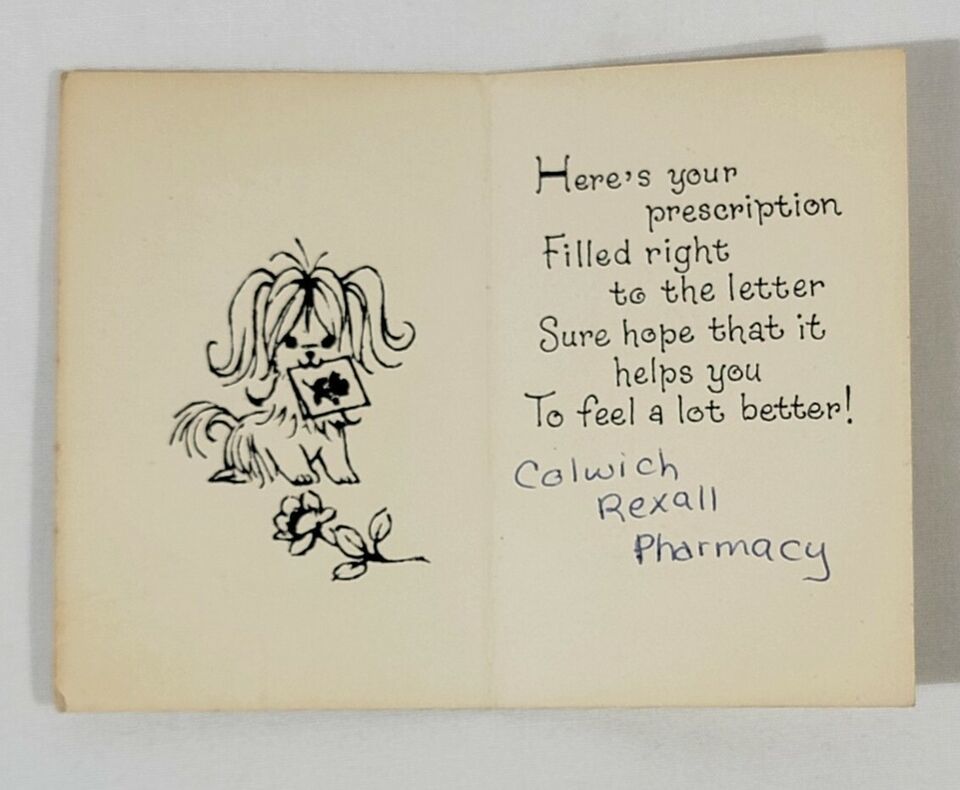 Here's your
prescription
Filled right
to the letter
Sure hope that it
helps you
To feel a lot better!
Colwich
Rexall
Pharmacy